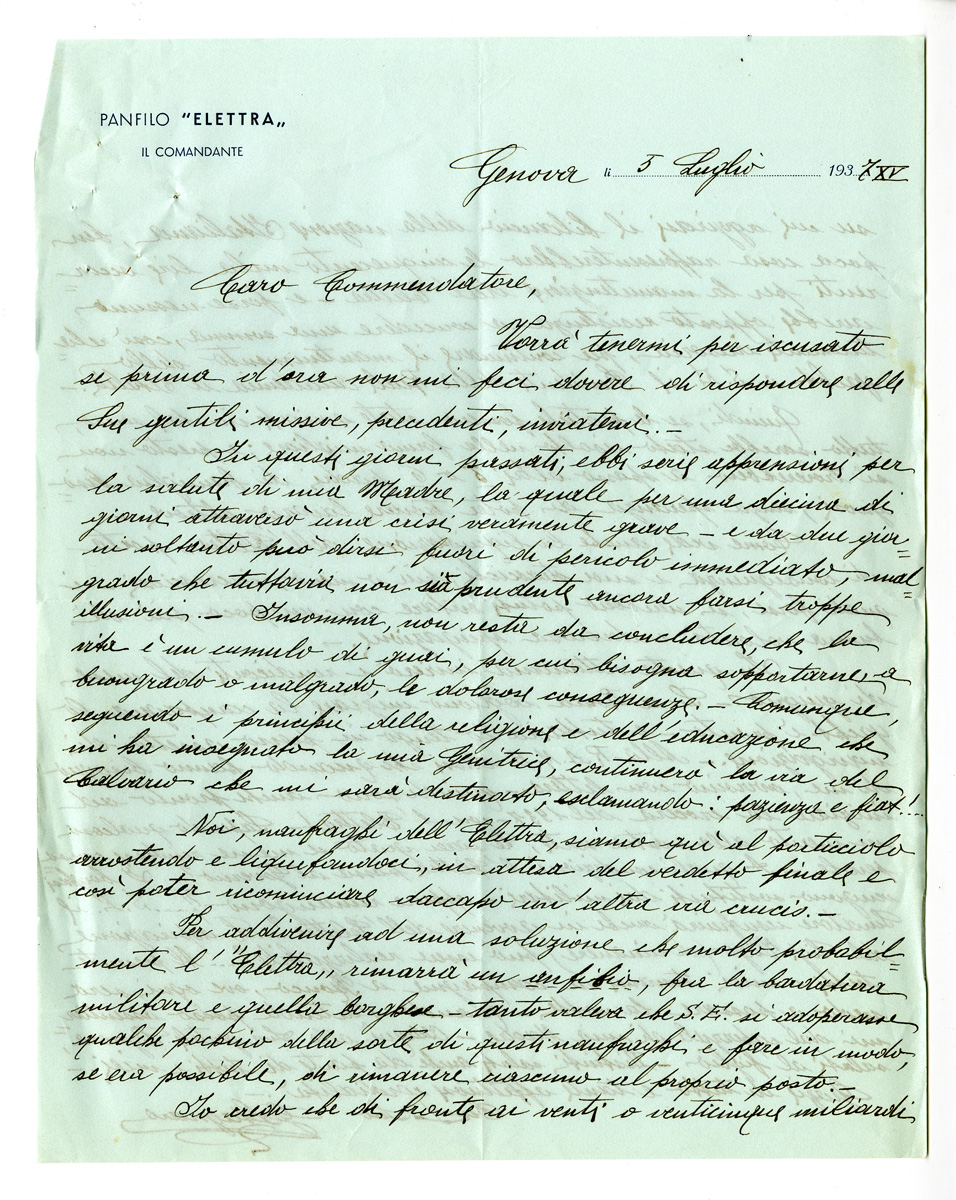 PANFILO "ELETTRA„
IL COMANDANTE
Genova li 5 Luglio 1937 XV
Caro Commendatore,
Vorrà tenermi per iscusato
se prima d'ora non mi feci dovere di rispondere alle
Sue gentili missive, precedenti, inviatemi.-
In questi giorni passati, ebbi serie apprensioni per
la salute di mia Madre, la quale per una diecina di
giorni attraversò una crisi veramente grave - e da due gior=
ni soltanto può dirsi fuori di pericolo immediato, mal=
grado che tuttavia non sia prudente ancora farsi troppe
illusioni.- Insomma, non resta da concludere, che la
vita è un cumulo di guai, per cui bisogna sopportarne, a
buongrado o malgrado, le dolorose conseguenze.- Comunque,
seguendo i principii della religione e dell'educazione che
mi ha insegnato la mia Genitrice, continuerò la via del
Calvario che mi sarà destinato, esclamando: pazienza e fiat!..
Noi, naufraghi dell'Elettra, siamo quì al porticciolo
arrostendo e liquefandoci, in attesa del verdetto finale e
così poter ricominciare daccapo un'altra via crucis.-
Per addivenire ad una soluzione che molto probabil=
mente l'"Elettra„ rimarrà un anfibio, fra la bardatura
militare e quella borghese - tanto valeva che S.E. si adoperasse
qualche pochino della sorte di questi naufraghi e fare in modo,
se era possibile, di rimanere ciascuno al proprio posto.-
Io credo che di fronte ai venti o venticinque miliardi